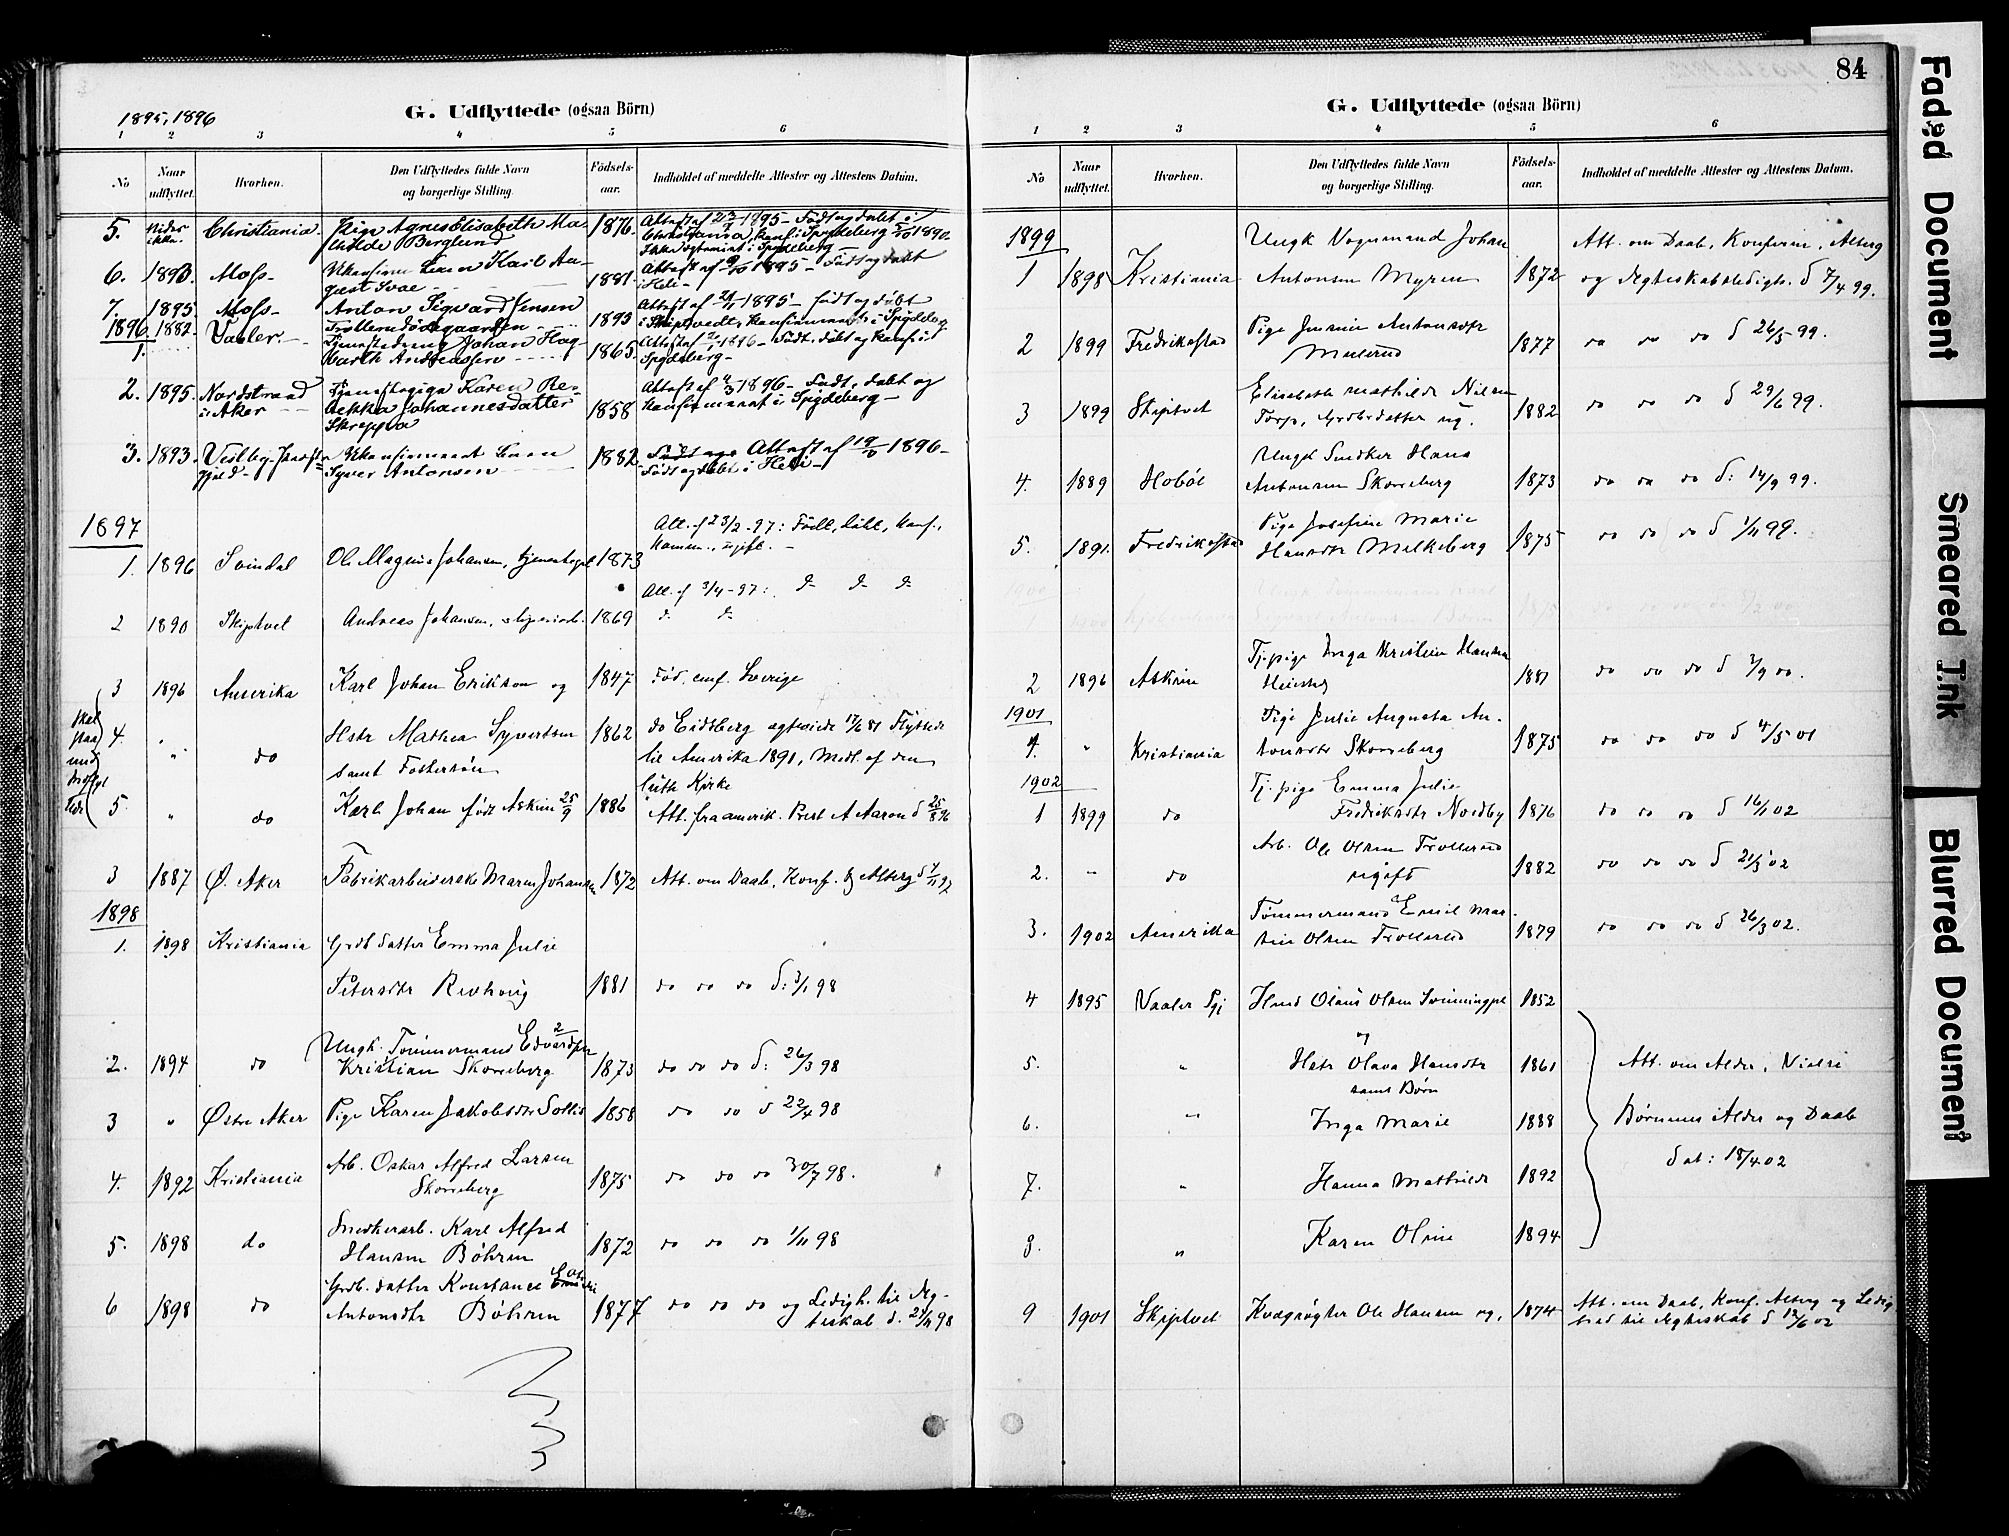 1895, 1896
G. Udflyttede (ogsaa Börn)
1 2 3 4 5 6
No
Naar udflyttet.
Hvorhen.
Den Udflyttedes fulde Navn og borgerlige Stilling.
Födsels-aar.
Indholdet af meddelte Attester og Attestens Datum.
5. Christiania. Pige Agnes Elisabeth Ma- 1876. Attest af 1895 – Født og døbt i
thilde Berglund Christiania, konf. i Spydeberg 1890.
Ikke vaccineret i Spydeberg –
6. 1893. Moss – Ukonfirm. Karl Au- 1881. Attest af 1895 – Født og døbt
gust i Heli –
7. 1895. Moss – Anton Sigvard Jensen 1893 Attest af 1895 – født og døbt
i Skiptvedt, Konfirmeret i Spydeberg
1896
1. 1882. Vaaler. Tjenestedreng Johan Hag- 1865. Attest af 1896 – Født, døbt og konf. i
barth Andreassen Spydeberg –
2. 1895. Nordstrand Tjenestepige Karen Re- Attest af 1896 – Født, døbt og
i Aker bekka Johannesdatter 1858 Konfirmeret i Spydeberg –
3. 1893. Vestby Ukonfirmeret 1882 Attest af 1896 –
gjeld – Syver Antonsen Født og døbt i Heli –
1897
Att. af 23/2-97: Født, døbt, konf.,
1. 1896 Svindal Ole Magnus Johansen, 1873 Komm., ugift. –
Att. af 3/4-97: d d d
2 1890 Skiptvet Andreas Johansen, 1869 d d
3 1896 Amerika Karl Johan Erikson og 1847 Fød. conf. Sverige
4. " do Hstr Mathea Syvertsen 1862 do Eidsberg egteviede 17/6 81 Flyttede
samt Fostersøn til Amerika 1891, Medl. af den
luth Kirke
5. " do Karl Johan født Askim 25/9 1886 Att. fra amerik. Prest A Aaron d 25/8 96
3 1887 Ø. Aker Fabrikarbeiderske Maren Johansen 1872 Att. om Daab, Konf. & Altberg d 97
1898
1. 1898 Kristiania Grdb datter Emma Julie
Petersdtr Revhoug 1881 do do do d: 3/1 98
2. 1894 do Ungk. Tømmermand Edvard
Kristian Skovseberg 1873 do do do d: 26/3 98
3 " Østre Aker Pige Karen Jakobsdtr Sollid 1858 do do d 22/4 98
4. 1892 Kristiania Arb. Oskar Alfred Larsen
Skovseberg 1875 do do do 30/7 98.
5. 1898 do Snedkerarb. Karl Alfred
Hansen Böhren 1872 do do do 1/11 98
6 1898 do Grdb. datter Konstance
Antonsdtr Böhren 1877 do do do og Ledigh. til Æg-
teskab d. 98
84
G. Udflyttede (ogsaa Börn)
1 2 3 4 5 6
No
Naar udflyttet.
Hvorhen.
Den Udflyttedes fulde Navn og borgerlige Stilling.
Födsels-aar.
Indholdet af meddelte Attester og Attestens Datum.
1899
Ungk Vognmand Johan Att. om Daab, Konfirm, Altberg
1 1898 Kristiania Antonsen Myren 1872 og Ægteskabsledigh. d 7/4 99.
2 1899 Fredrikstad Pige Antonsdtr
1877 do do do d 26/5 99.
3 1899 Skiptvet Elisabeth Mathilde Nilsen
Torp, Grdbrdatter ug. 1882 do do do d 29/6 99.
4. 1889 Hobøl Ungk Snedker Hans
Antonsen Skovseberg 1873 do do do d: 14/9 99.
5. 1891. Fredrikstad Pige Josefine Marie
Hansdtr Melkeberg 1875 do do do d 1/11 99.
1900
2 1896 Askim Tj.pige Inga Kristine Hansen
1881 do do do d 3/9 00.
1901
1. " Kristiania Pige Julie Augusta An-
tonsdtr Skovseberg 1875 do do do d 4/5 01
1902
1 1899 do Tj. pige Emma Julie
Fredriksdtr Nordby 1876 do do do d 16/1 02
2. " do Arb. Ole Olsen Trollerud
ugift 1882 do do do d 21/3 02
3. 1902 Amerika Tømmermand Emil Mar-
tin Olsen Trollerud 1879 do do do d 26/3 02.
4 1895 Vaaler Pgj Hmd Olaus Olsen 1852
og
5. " Hstr Olava Hansdtr 1861 Att. om Alder, Vielse
samt Børn
6. " Inga Marie 1888 Børnenes Alder og Daab
dat: 18/4 02
7. " Hanna Mathilde 1892
8. " Karen Oline 1894
9 1901 Skiptvet Kvægrøgter Ole Hansen ug, 1874 Att. om Daab, Konf. Altberg og Ledig
hed til Ægteskab d 12/6 02
Faded Document
Smeared Ink
Blurred Document